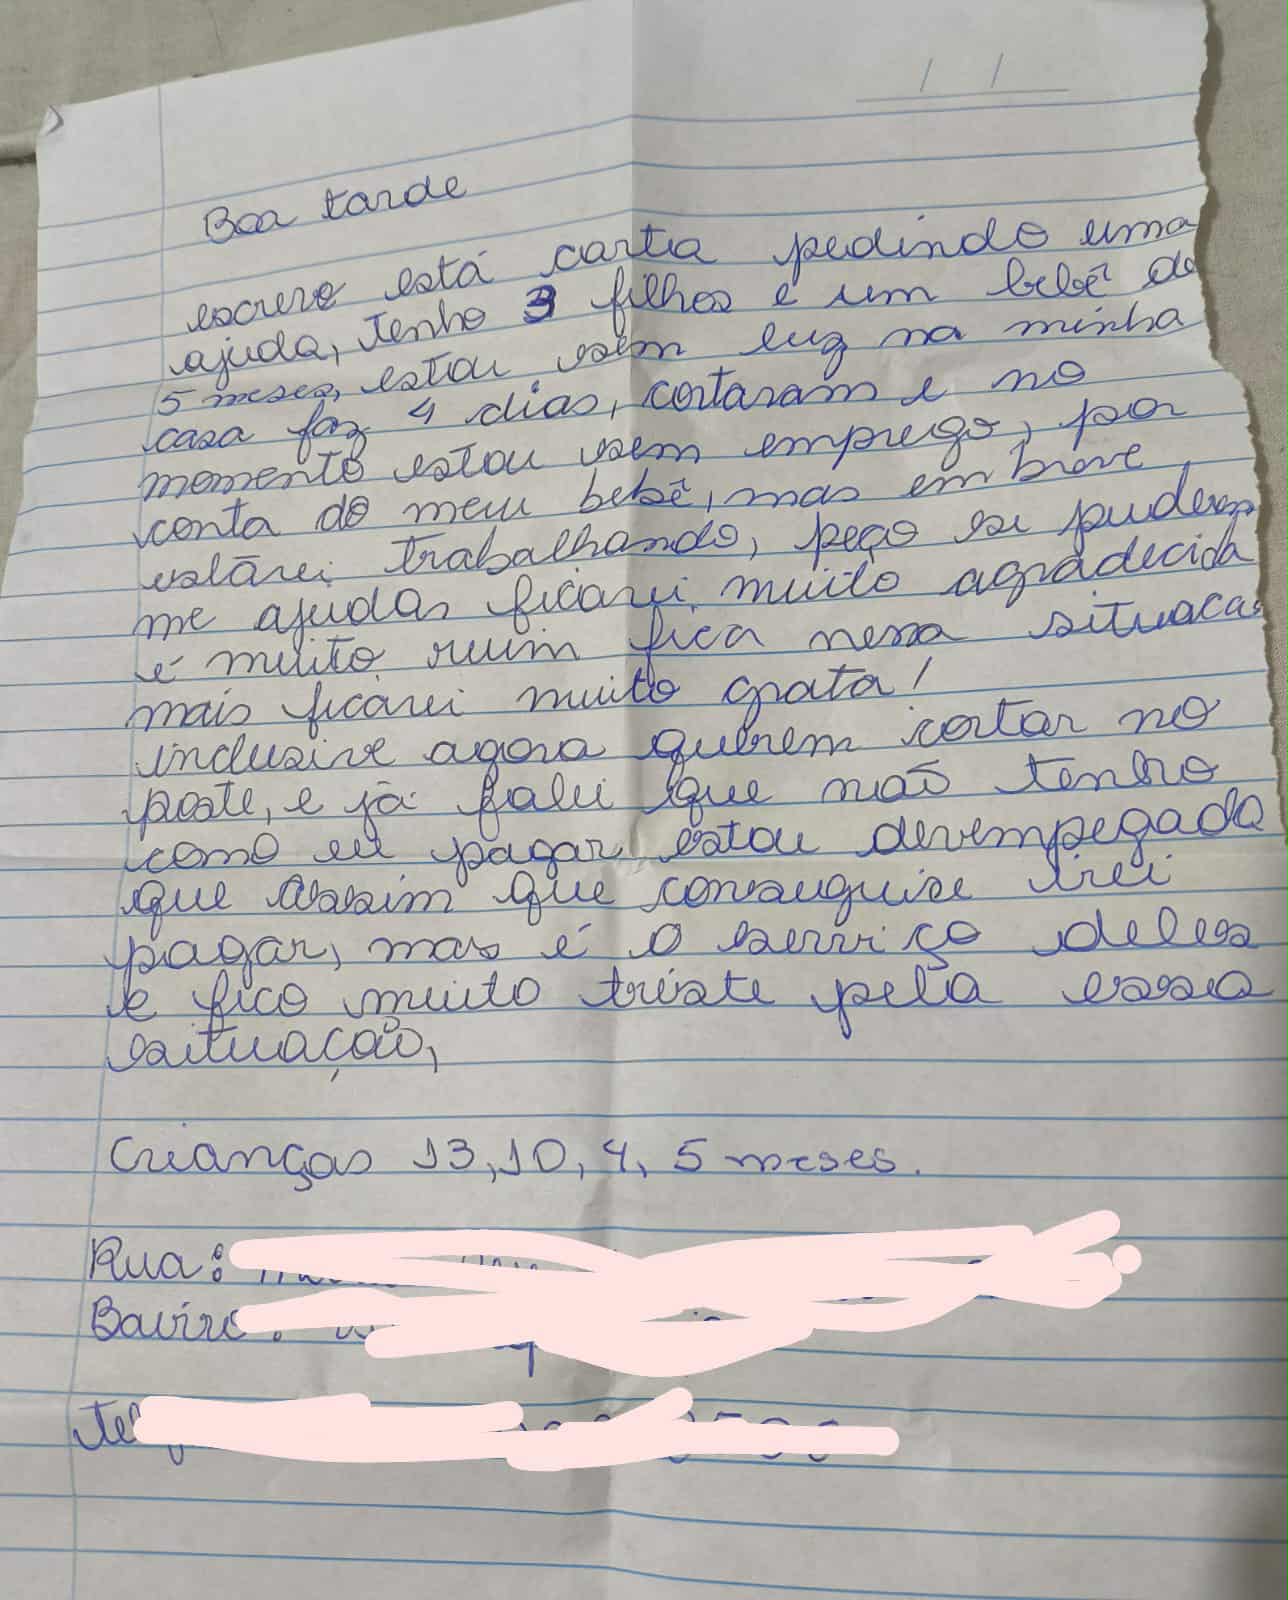 / /
Boa tarde
escrevo está carta pedindo uma
ajuda, tenho 3 filhos e um bebê de
5 meses, estou sem luz na minha
casa faz 4 dias, cortaram e no
momento estou sem emprego, por
conta do meu bebê, mas em breve
estárei trabalhando, peço se puderem
me ajudar ficarei muito agradecida
é muito ruim fica nessa situacao
mais ficarei muito grata!
inclusive agora querem cortar no
poste, e já falei que não tenho
como eu pagar estou desempegada
que assim que conseguise irei
pagar, mas é o serviço deles
e fico muito triste pela essa
situação,
Crianças 13, 10, 4, 5 meses.
Rua:
Bairro: